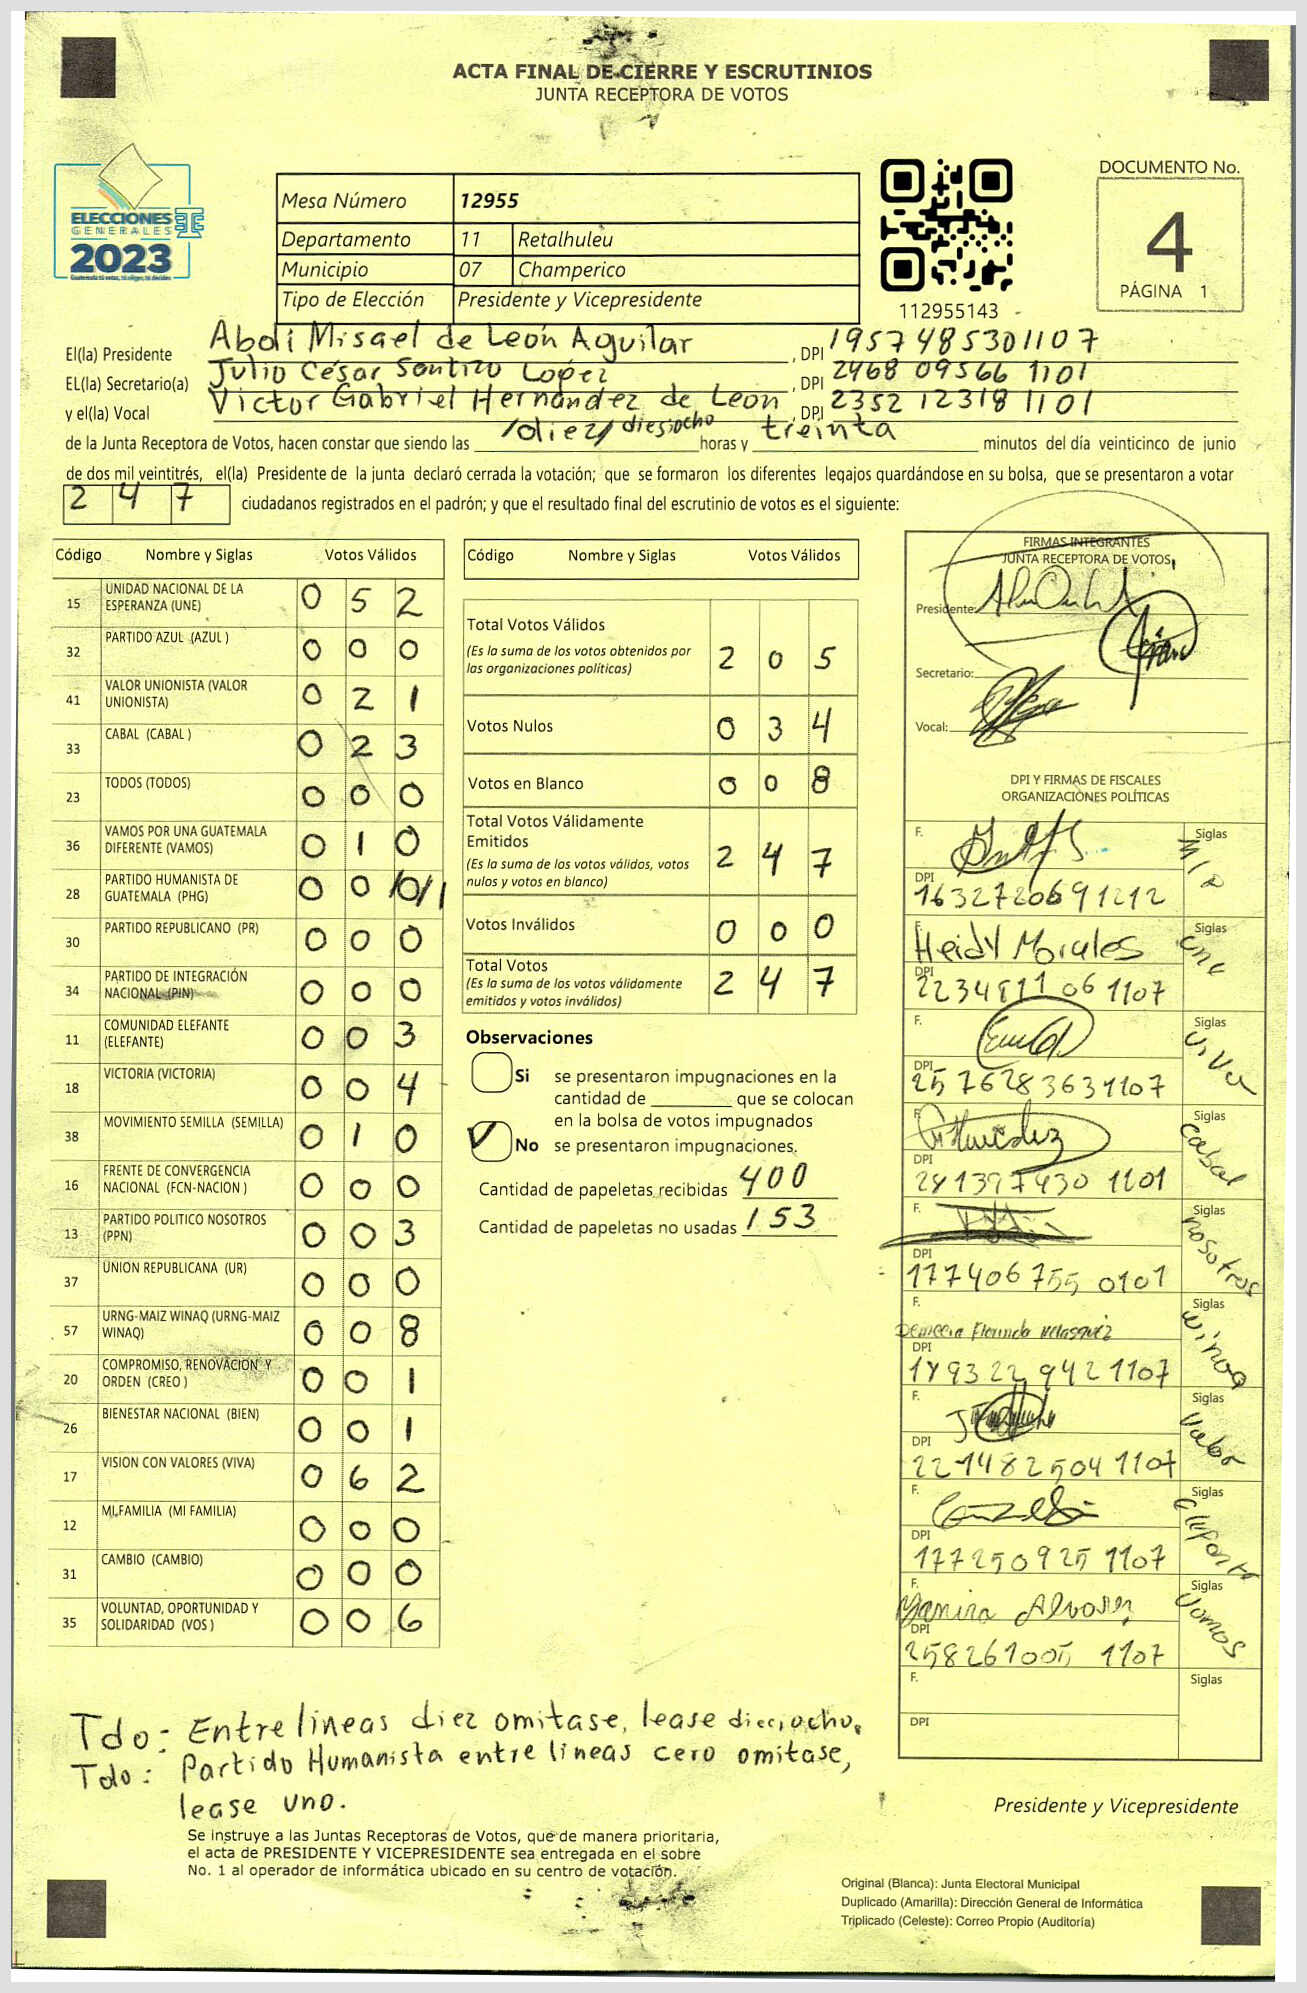 ACTA FINAL DE CIERRE Y ESCRUTINIOS
JUNTA RECEPTORA DE VOTOS
ELECCIONES
GENERALES
2023
Mesa Número 12955
Departamento 11 Retalhuleu
Municipio 07 Champerico
Tipo de Elección Presidente y Vicepresidente
112955143
DOCUMENTO No.
4
PÁGINA 1
El(la) Presidente Abdi Misael de León Aguilar, DPI 1957485301107
EL(la) Secretario(a) Julio César Santizo López, DPI 2468 09566 1101
y el(la) Vocal Víctor Gabriel Hernández de León, DPI 2352 12318 1101
de la Junta Receptora de Votos, hacen constar que siendo las /diez/ diesiocho horas y treinta minutos del día veinticinco de junio
de dos mil veintitrés, el(la) Presidente de la junta declaró cerrada la votación; que se formaron los diferentes legajos guardándose en su bolsa, que se presentaron a votar
2 4 7 ciudadanos registrados en el padrón; y que el resultado final del escrutinio de votos es el siguiente:
Código Nombre y Siglas Votos Válidos
15 UNIDAD NACIONAL DE LA ESPERANZA (UNE) 0 5 2
32 PARTIDO AZUL (AZUL ) 0 0 0
41 VALOR UNIONISTA (VALOR UNIONISTA) 0 2 1
33 CABAL (CABAL ) 0 2 3
23 TODOS (TODOS) 0 0 0
36 VAMOS POR UNA GUATEMALA DIFERENTE (VAMOS) 0 1 0
28 PARTIDO HUMANISTA DE GUATEMALA (PHG) 0 0 /0/1
30 PARTIDO REPUBLICANO (PR) 0 0 0
34 PARTIDO DE INTEGRACIÓN NACIONAL (PIN) 0 0 0
11 COMUNIDAD ELEFANTE (ELEFANTE) 0 0 3
18 VICTORIA (VICTORIA) 0 0 4
38 MOVIMIENTO SEMILLA (SEMILLA) 0 1 0
16 FRENTE DE CONVERGENCIA NACIONAL (FCN-NACION ) 0 0 0
13 PARTIDO POLITICO NOSOTROS (PPN) 0 0 3
37 UNION REPUBLICANA (UR) 0 0 0
57 URNG-MAIZ WINAQ (URNG-MAIZ WINAQ) 0 0 8
20 COMPROMISO, RENOVACION Y ORDEN (CREO ) 0 0 1
26 BIENESTAR NACIONAL (BIEN) 0 0 1
17 VISION CON VALORES (VIVA) 0 6 2
12 MI FAMILIA (MI FAMILIA) 0 0 0
31 CAMBIO (CAMBIO) 0 0 0
35 VOLUNTAD, OPORTUNIDAD Y SOLIDARIDAD (VOS ) 0 0 6
Código Nombre y Siglas Votos Válidos
Total Votos Válidos
(Es la suma de los votos obtenidos por
las organizaciones políticas) 2 0 5
Votos Nulos 0 3 4
Votos en Blanco 0 0 8
Total Votos Válidamente
Emitidos
(Es la suma de los votos válidos, votos
nulos y votos en blanco) 2 4 7
Votos Inválidos 0 0 0
Total Votos
(Es la suma de los votos válidamente
emitidos y votos inválidos) 2 4 7
Observaciones
Si se presentaron impugnaciones en la
cantidad de que se colocan
en la bolsa de votos impugnados
No se presentaron impugnaciones.
Cantidad de papeletas recibidas 400
Cantidad de papeletas no usadas 153
FIRMAS INTEGRANTES
JUNTA RECEPTORA DE VOTOS
Presidente:
Secretario:
Vocal:
DPI Y FIRMAS DE FISCALES
ORGANIZACIONES POLÍTICAS
F. Siglas
DPI 1632720691212
F. Heidy Morales Siglas une
DPI 2234811 06 1107
F. Siglas viva
DPI 2576283631107
F. Siglas cabal
DPI 281397430 1101
F. Siglas nosotros
DPI 177406755 0101
F. Siglas winaq
DPI 189322 9421107
F. Siglas valor
DPI 221482504 1107
F. Siglas elefante
DPI 177250925 1107
F. Yanira Alvarez Siglas vamos
DPI 258261005 1107
F. Siglas
DPI
Tdo: Entre líneas diez omitase, lease dieciocho.
Tdo: Partido Humanista entre líneas cero omitase,
lease uno.
Se instruye a las Juntas Receptoras de Votos, que de manera prioritaria,
el acta de PRESIDENTE Y VICEPRESIDENTE sea entregada en el sobre
No. 1 al operador de informática ubicado en su centro de votación.
Presidente y Vicepresidente
Original (Blanca): Junta Electoral Municipal
Duplicado (Amarilla): Dirección General de Informática
Triplicado (Celeste): Correo Propio (Auditoría)